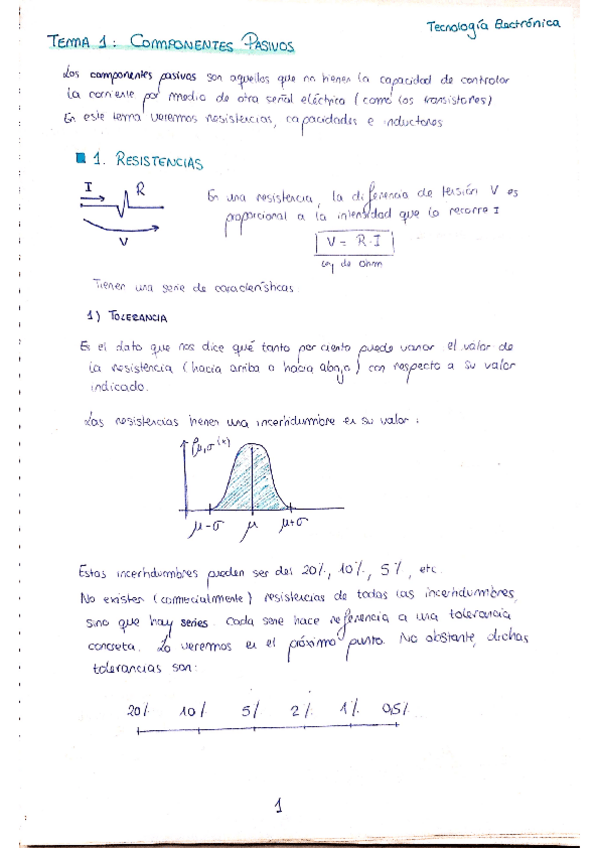 Tecnología Electrónica
TEMA 1: COMPONENTES PASIVOS
Los componentes pasivos son aquellos que no tienen la capacidad de controlar
la corriente por medio de otra señal eléctrica (como los transistores)
En este tema veremos resistencias, capacidades e inductores
1. RESISTENCIAS
I R
V
En una resistencia, la diferencia de tensión V es
proporcional a la intensidad que lo recorre I
V = R·I
Ley de Ohm
Tienen una serie de características
1) TOLERANCIA
Es el dato que nos dice qué tanto por ciento puede variar el valor de
la resistencia (hacia arriba o hacia abajo) con respecto a su valor
indicado.
Las resistencias tienen una incertidumbre en su valor:
fμ,σ(x)
μ-σ μ μ+σ
Estas incertidumbres pueden ser del 20%, 10%, 5%, etc.
No existen (comercialmente) resistencias de todas las incertidumbres,
sino que hay series. Cada serie hace referencia a una tolerancia
concreta. Lo veremos en el próximo punto. No obstante, dichas
tolerancias son:
20% 10% 5% 2% 1% 0,5%
1